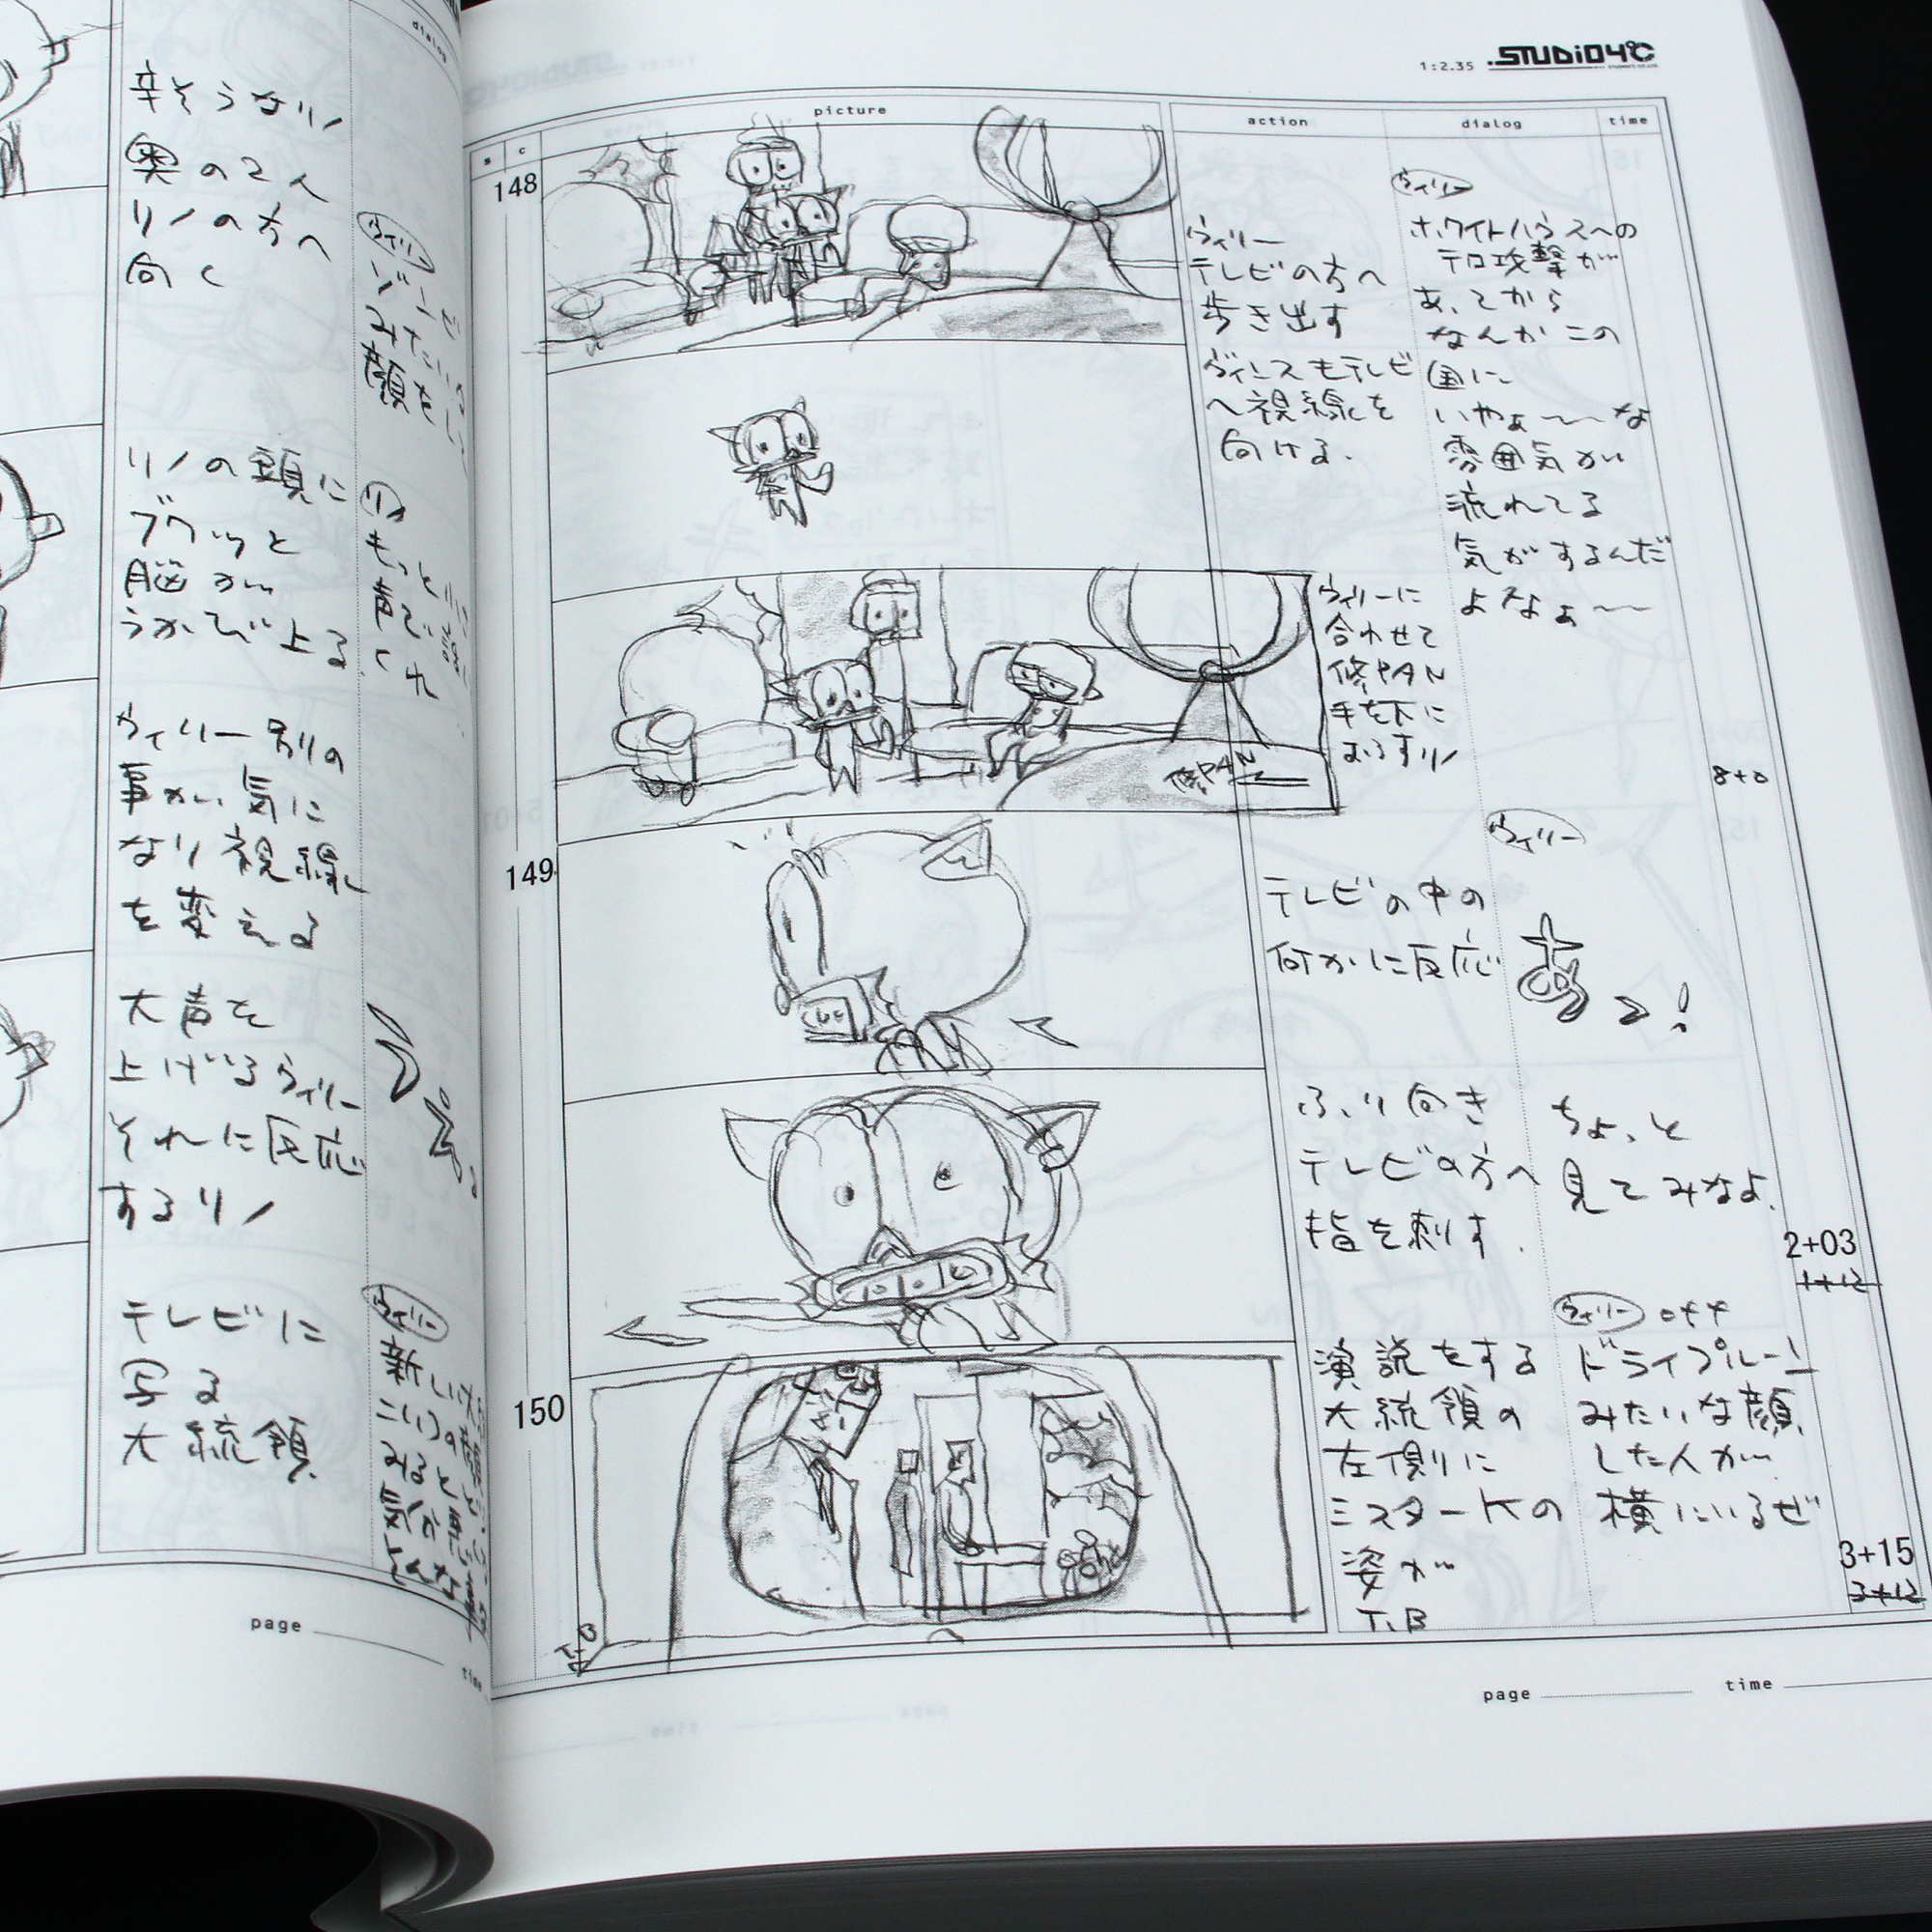 dialog
辛そうなリノ
奥の2人
リノの方へ
向く
ウィリー
みたいな
顔を
リノの頭に
ブクッと
脳が
うかび上る
リノ
もっと
声で
くれ
ウィリー別の
事が気に
なり視線
を変える
大声を
上げるウィリー
それに反応
するリノ
テレビに
写る
大統領
ウィリー
新しい
page
time
1:2.35 STUDIO4℃
s c picture action dialog time
148
ウィリー
テレビの方へ
歩き出す
ヴィンスもテレビ
へ視線を
向ける.
ウィリー
ホワイトハウスへの
テロ攻撃が
あってから
なんかこの
国に
いやぁ〜〜な
雰囲気が
流れてる
気がするんだ
よなぁ〜〜
ウィリーに
合わせて
修PAN
手を下に
おろすリノ
修PAN
8+0
149
テレビの中の
何かに反応
ウィリー
あっ!
ふり向き
テレビの方へ
指を刺す.
ちょっと
見てみなよ.
2+03
1+12
150
演説をする
大統領の
左側に
ミスターKの
姿が
T.B
ウィリー off
ドライプルーン
みたいな顔
した人が
横にいるぜ
3+15
3+12
T.B
page
time